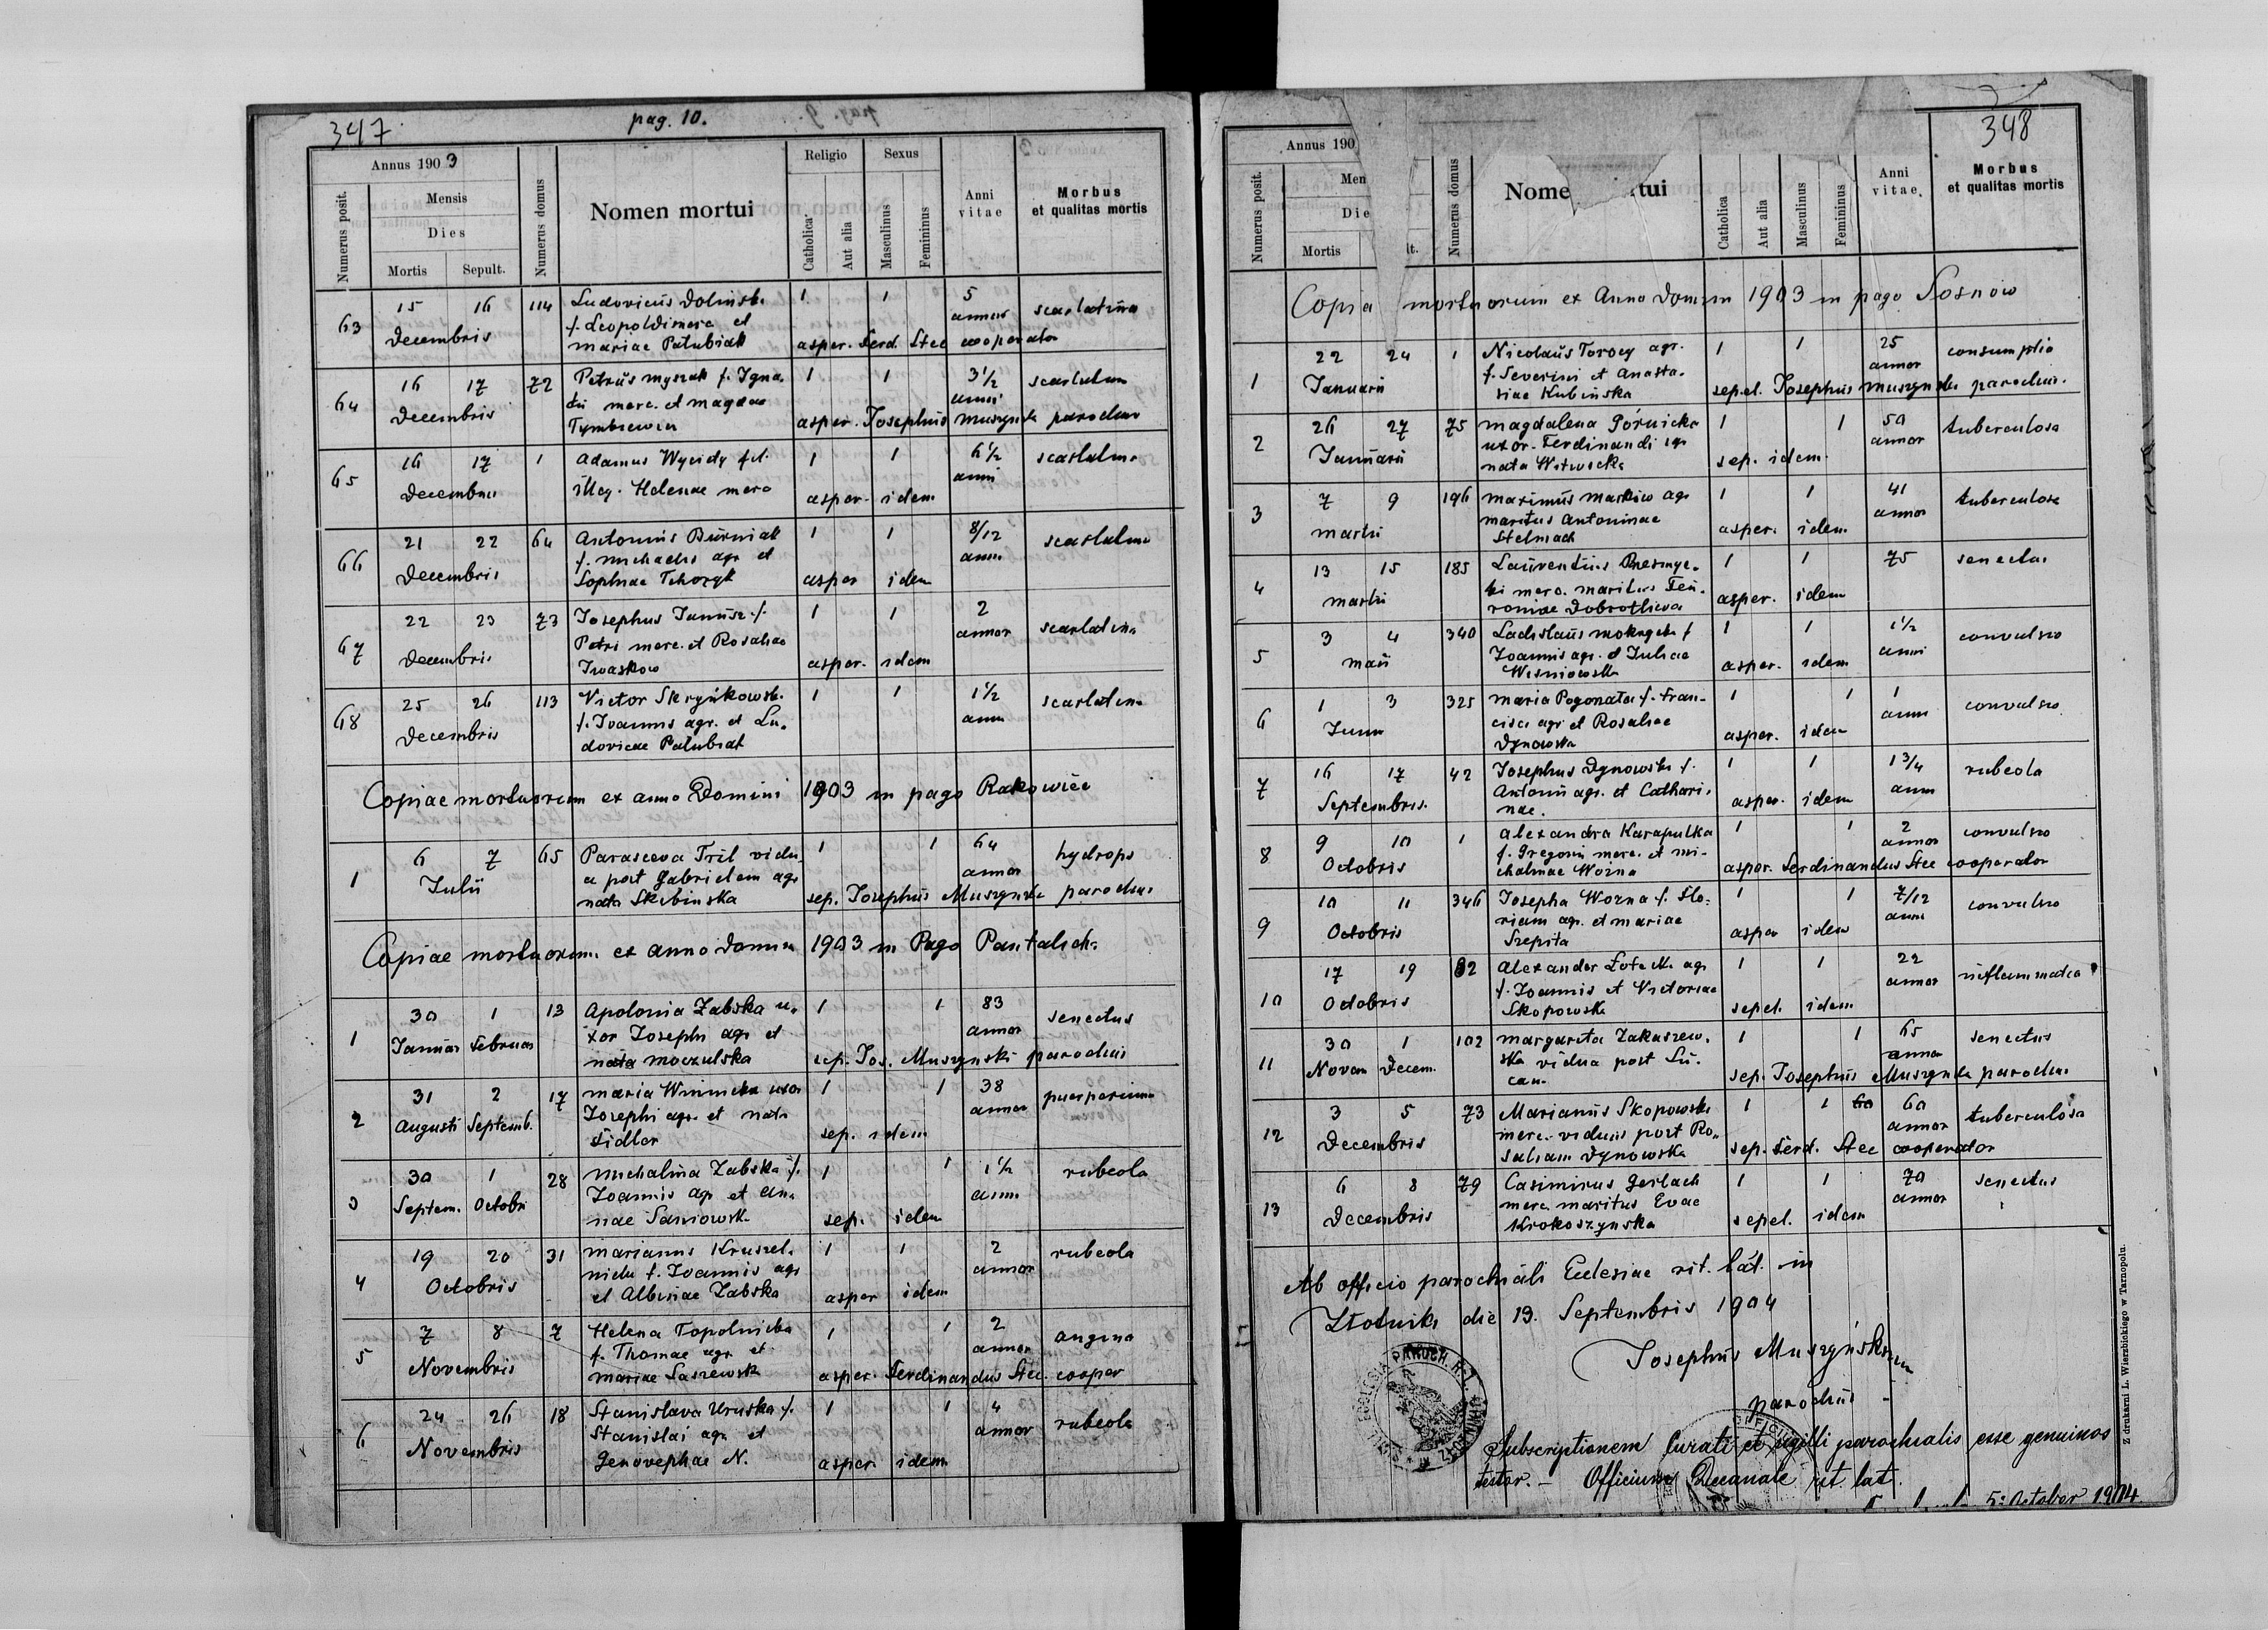 347
pag. 10.
Annus 1903
Religio
Sexus
Numerus posit.
Mensis
Dies
Mortis
Sepult.
Numerus domus
Nomen mortui
Catholica
Aut alia
Masculinus
Femininus
Anni
vitae
Morbus
et qualitas mortis
63 15 16 114 Ludovicus Dolinsk. 1 1 5 scarlatina
Decembris f. Leopoldi merc et annor
Mariae Patubiak asper. Ferd. Stec cooperator
64 16 17 72 Petrus Myszak f. Igna. 1 1 3 1/2 scarlatin
Decembris tii merc. et Magdae anni
Tymbrewicz asper. Josephus Muszynski parochus
65 16 17 1 Adamus Wycidy fil. 1 1 6 1/2 scarlatin
Decembris illeg. Helenae merc asper. idem anni
66 21 22 64 Antonius Burniak 1 1 8/12 scarlatin
Decembris f. Michaelis agr et anni
Sophiae Tchozyk asper idem
67 22 23 73 Josephus Janusz f. 1 1 2 scarlatina
Decembris Petri merc. et Rosaliae annor
Iwaskow asper. idem
68 25 26 113 Victor Skrzykowsk. 1 1 1 1/2 scarlatina
Decembris f. Joannis agr. et Lu- anni
dovicae Patubiak
Copiae mortuorum ex anno Domini 1903 in pago Rakowiec
1 6 7 65 Parasceva Tril vidu- 1 1 64 hydrops
Julii a post Gabrielem agr annor
nata Skibinska sep. Josephus Muszynski parochus
Copiae mortuorum ex anno Domini 1903 in Pago Pantalich.
1 30 1 13 Apolonia Zabska u- 1 1 83 senectus
Januar Februar xor Josephi agr et annor
nata Moczulska sep. Jos. Muszynski parochus
2 31 2 17 Maria Winnicka uxor 1 1 38 puerperium
Augusti Septemb. Josephi agr. et nata annor
Fidler sep. idem
3 30 1 28 Michalina Zabska f. 1 1 1 1/2 rubeola
Septem. Octobri Joannis agr et An- anni
nae Saniowsk sep. idem
4 19 20 31 Marianus Kruszel- 1 1 2 rubeola
Octobris nicki f. Joannis agr annor
et Albinae Zabska asper idem
5 7 8 7 Helena Topolnicka 1 1 2 angina
Novembris f. Thomae agr et annor
Mariae Saszewsk asper. Ferdinandus Stec. cooper
6 24 26 18 Stanislava Uruska f. 1 1 4 rubeola
Novembris Stanislai agr et annor
Genovephae N. asper. idem
348
Annus 190
Numerus posit.
Men
Die
Mortis
lt.
Numerus domus
Nome tui
Catholica
Aut alia
Masculinus
Femininus
Anni
vitae
Morbus
et qualitas mortis
Copia mortuorum ex Anno Domini 1903 in pago Sosnow
1 22 24 1 Nicolaus Torocy agr. 1 1 25 consumptio
Januarii f. Severini et Anasta- annor
siae Kubinska sepel. Josephus Muszynski parochus.
2 26 27 75 Magdalena Górnicka 1 1 50 tuberculosa
Januarii uxor. Ferdinandi agr annor
nata Witwicka sep. idem.
3 7 9 196 Maximus Markiw agr 1 1 41 tuberculosa
Martii maritus Antoninae annor
Stelmach asper. idem
4 13 15 185 Laurentius 1 1 75 senectus
Martii ki merc. maritus Feu-
roniae Dobrotliwa asper. idem
5 3 4 340 Ladislaus Mokrycki f 1 1 1 1/2 convulsio
Maii Joannis agr. et Juliae anni
Wisniowska asper. idem
6 1 3 325 Maria Pogonata f. Fran- 1 1 1 convulsio
Junii cisci agr et Rosaliae anni
Dynowska asper. idem
7 16 17 42 Josephus Dynowski f. 1 1 1 3/4 rubeola
Septembris. Antonii agr. et Cathari- anni
nae. asper. idem
8 9 10 1 Alexandra Karapulka 1 1 2 convulsio
Octobris f. Gregorii merc. et Mi- annor
chalinae Worna asper. Ferdinandus Stec cooperator
9 10 11 346 Josepha Worna f. Flo- 1 1 7/12 convulsio
Octobris riani agr. et Mariae anni
Szepita asper idem
10 17 19 82 Alexander Lotecki agr 1 1 22 inflammatio
Octobris f. Joannis et Victoriae annor
Skopowska sepel. idem
11 30 1 102 Margarita Zakaszew- 1 1 65 senectus
Novem Decem. ska vidua post Lu- annor
cam sep. Josephus Muszynski parochus
12 3 5 73 Marianus Skopowski 1 1 60 tuberculosa
Decembris merc. viduus post Ro- annor
saliam Dynowska sep. Ferd. Stec cooperator
13 6 8 79 Casimirus Gerlach 1 1 70 senectus
Decembris merc. maritus Evae annor
Krokoszynska sepel. idem
Ab officio parochiali Eclesiae rit. lat. in
Złotnik die 13. Septembris 1904
Josephus Muszyński
parochus
Subscriptionem Curati et sigilli parochialis esse genuinos
testor. — Officium Decanale rit. lat.
5. October 1904
Z drukarni L. Wierzbickiego w Tarnopolu.